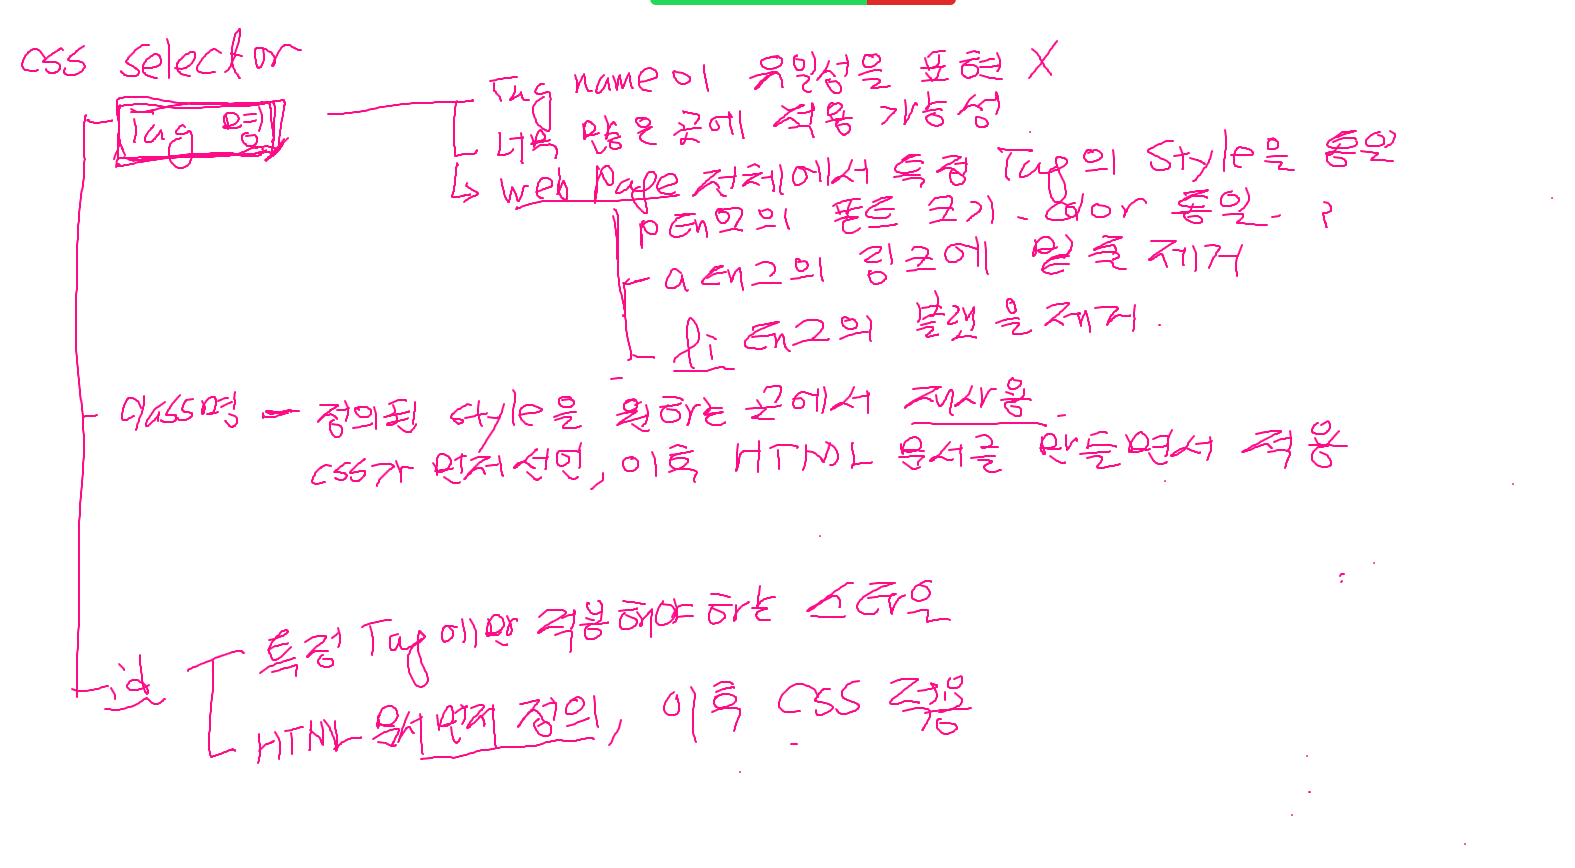 css selector
Tag 명
Tag name이 유일성을 표현 X
너무 많은 곳에 적용 가능성
web Page 전체에서 특정 Tag의 Style을 통일
p 태그의 폰트 크기. color 통일.
a 태그의 링크에 밑줄 제거
li 태그의 블랫을 제거.
class명 - 정의된 style을 원하는 곳에서 재사용.
css가 먼저 선언, 이후 HTML 문서를 만들면서 적용
id
특정 Tag에만 적용해야 하는 스타일
HTML 문서 먼저 정의, 이후 CSS 적용